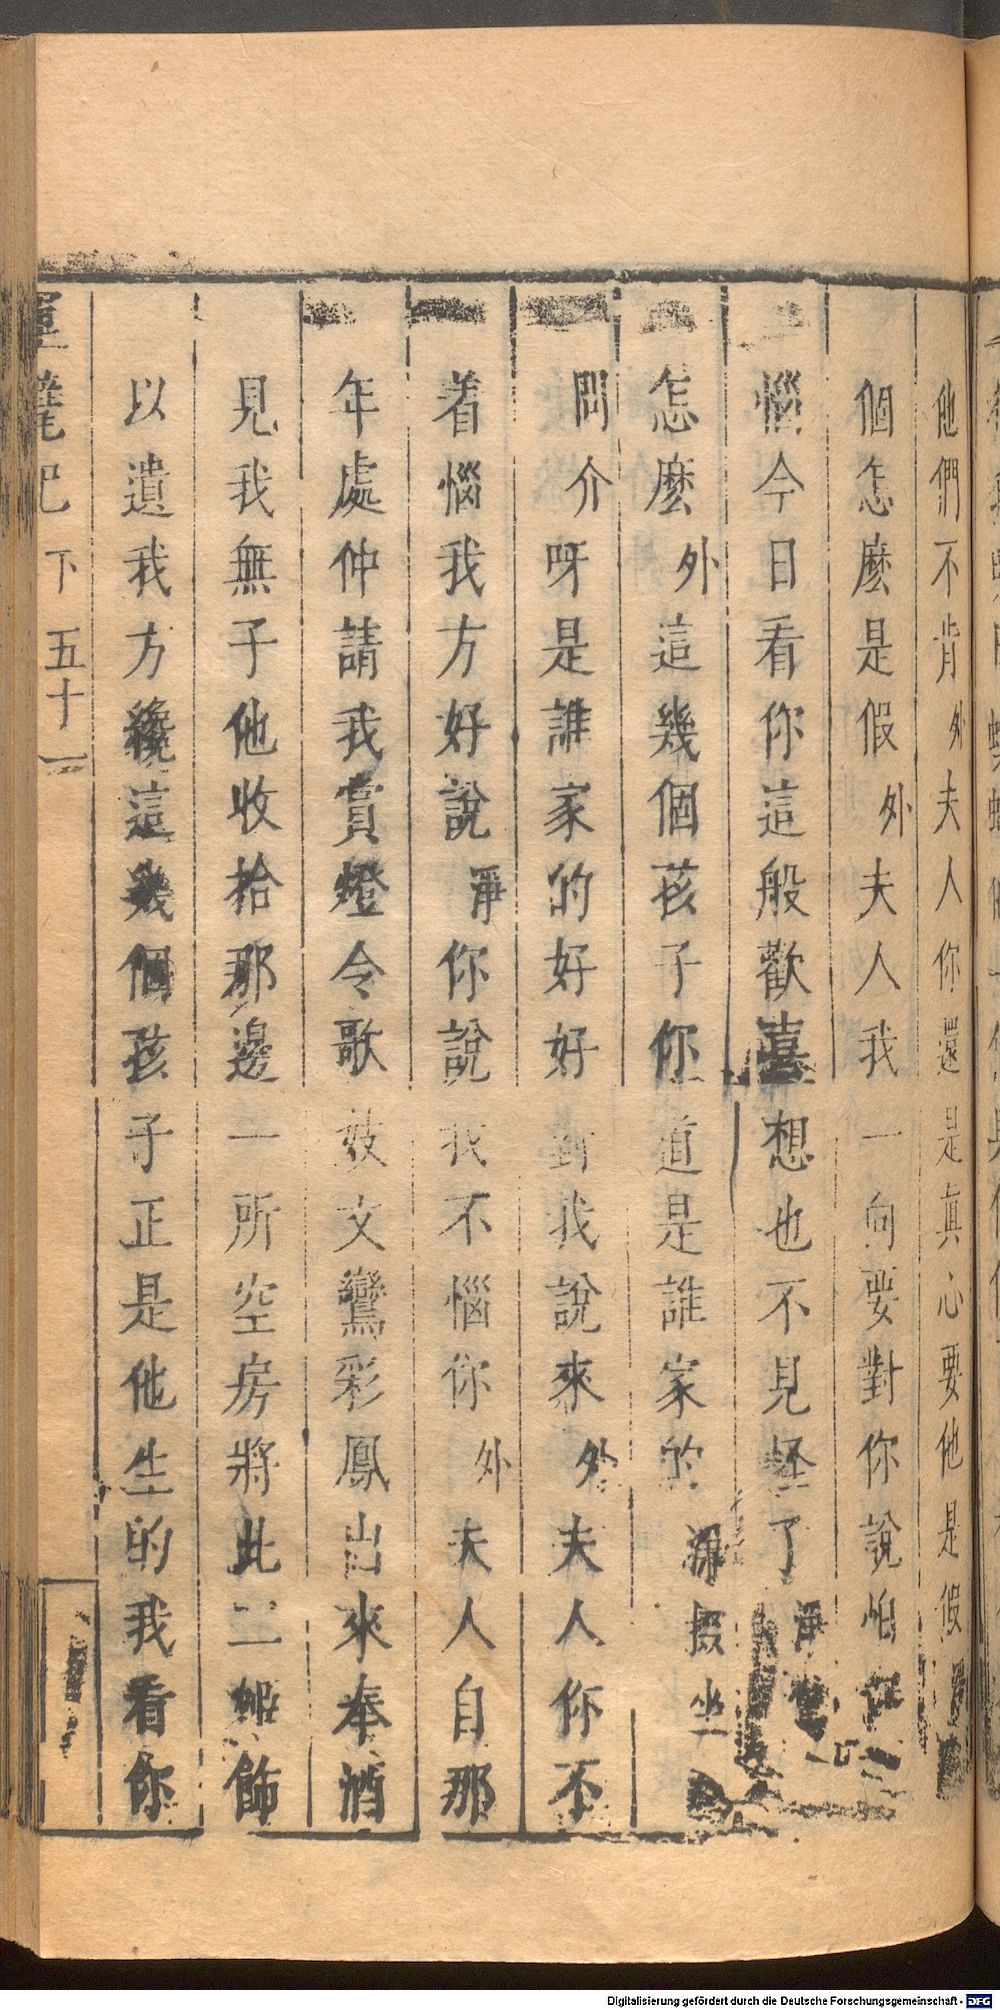 他們不肯外夫人你還是真心要他是假
個怎麽是假外夫人我一向要對你說怕
惱今日看你這般歡喜想也不見怪了淨
怎麽外這幾個孩子你道是誰家的淨掇坐
問介呀是誰家的好好對我說來外夫人你不
着惱我方好說淨你說我不惱你外夫人自那
年處仲請我賞燈令歌妓文鸞彩鳳出來奉酒
見我無子他收拾那邊一所空房將此二姬飾
以遺我方纔這幾個孩子正是他生的我看你
記 下 五十一
Digitalisierung gefördert durch die Deutsche Forschungsgemeinschaft - DFG